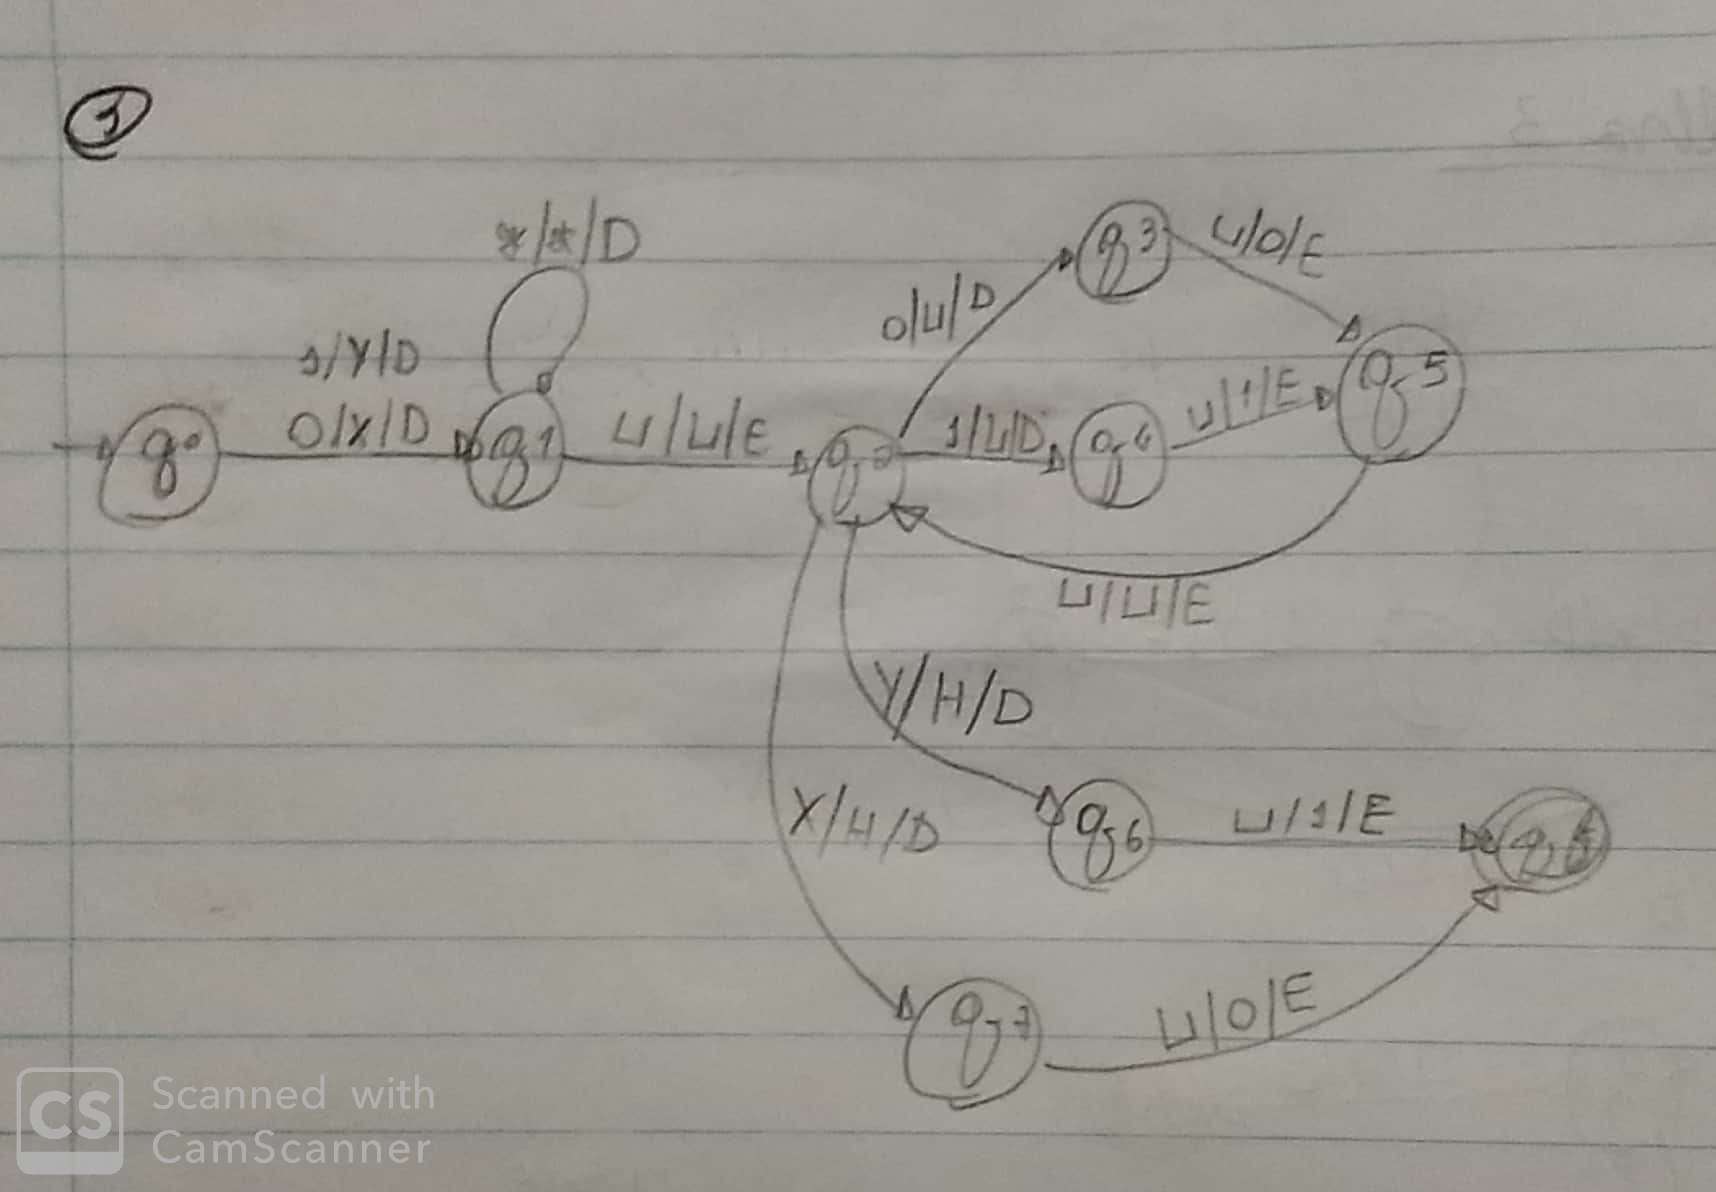 1
*/*/D
1/Y/D
0/X/D
q0
q1
⊔/⊔/E
q2
0/⊔/D
q3
⊔/0/E
1/⊔/D
q4
⊔/1/E
q5
⊔/⊔/E
Y/H/D
X/H/D
q6
⊔/1/E
q7
⊔/0/E
CS Scanned with
CamScanner